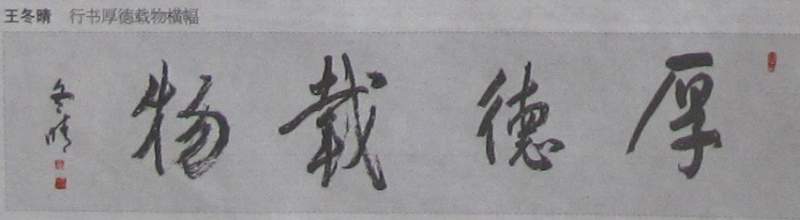 王冬晴 行书厚德载物横幅
厚德载物
冬晴